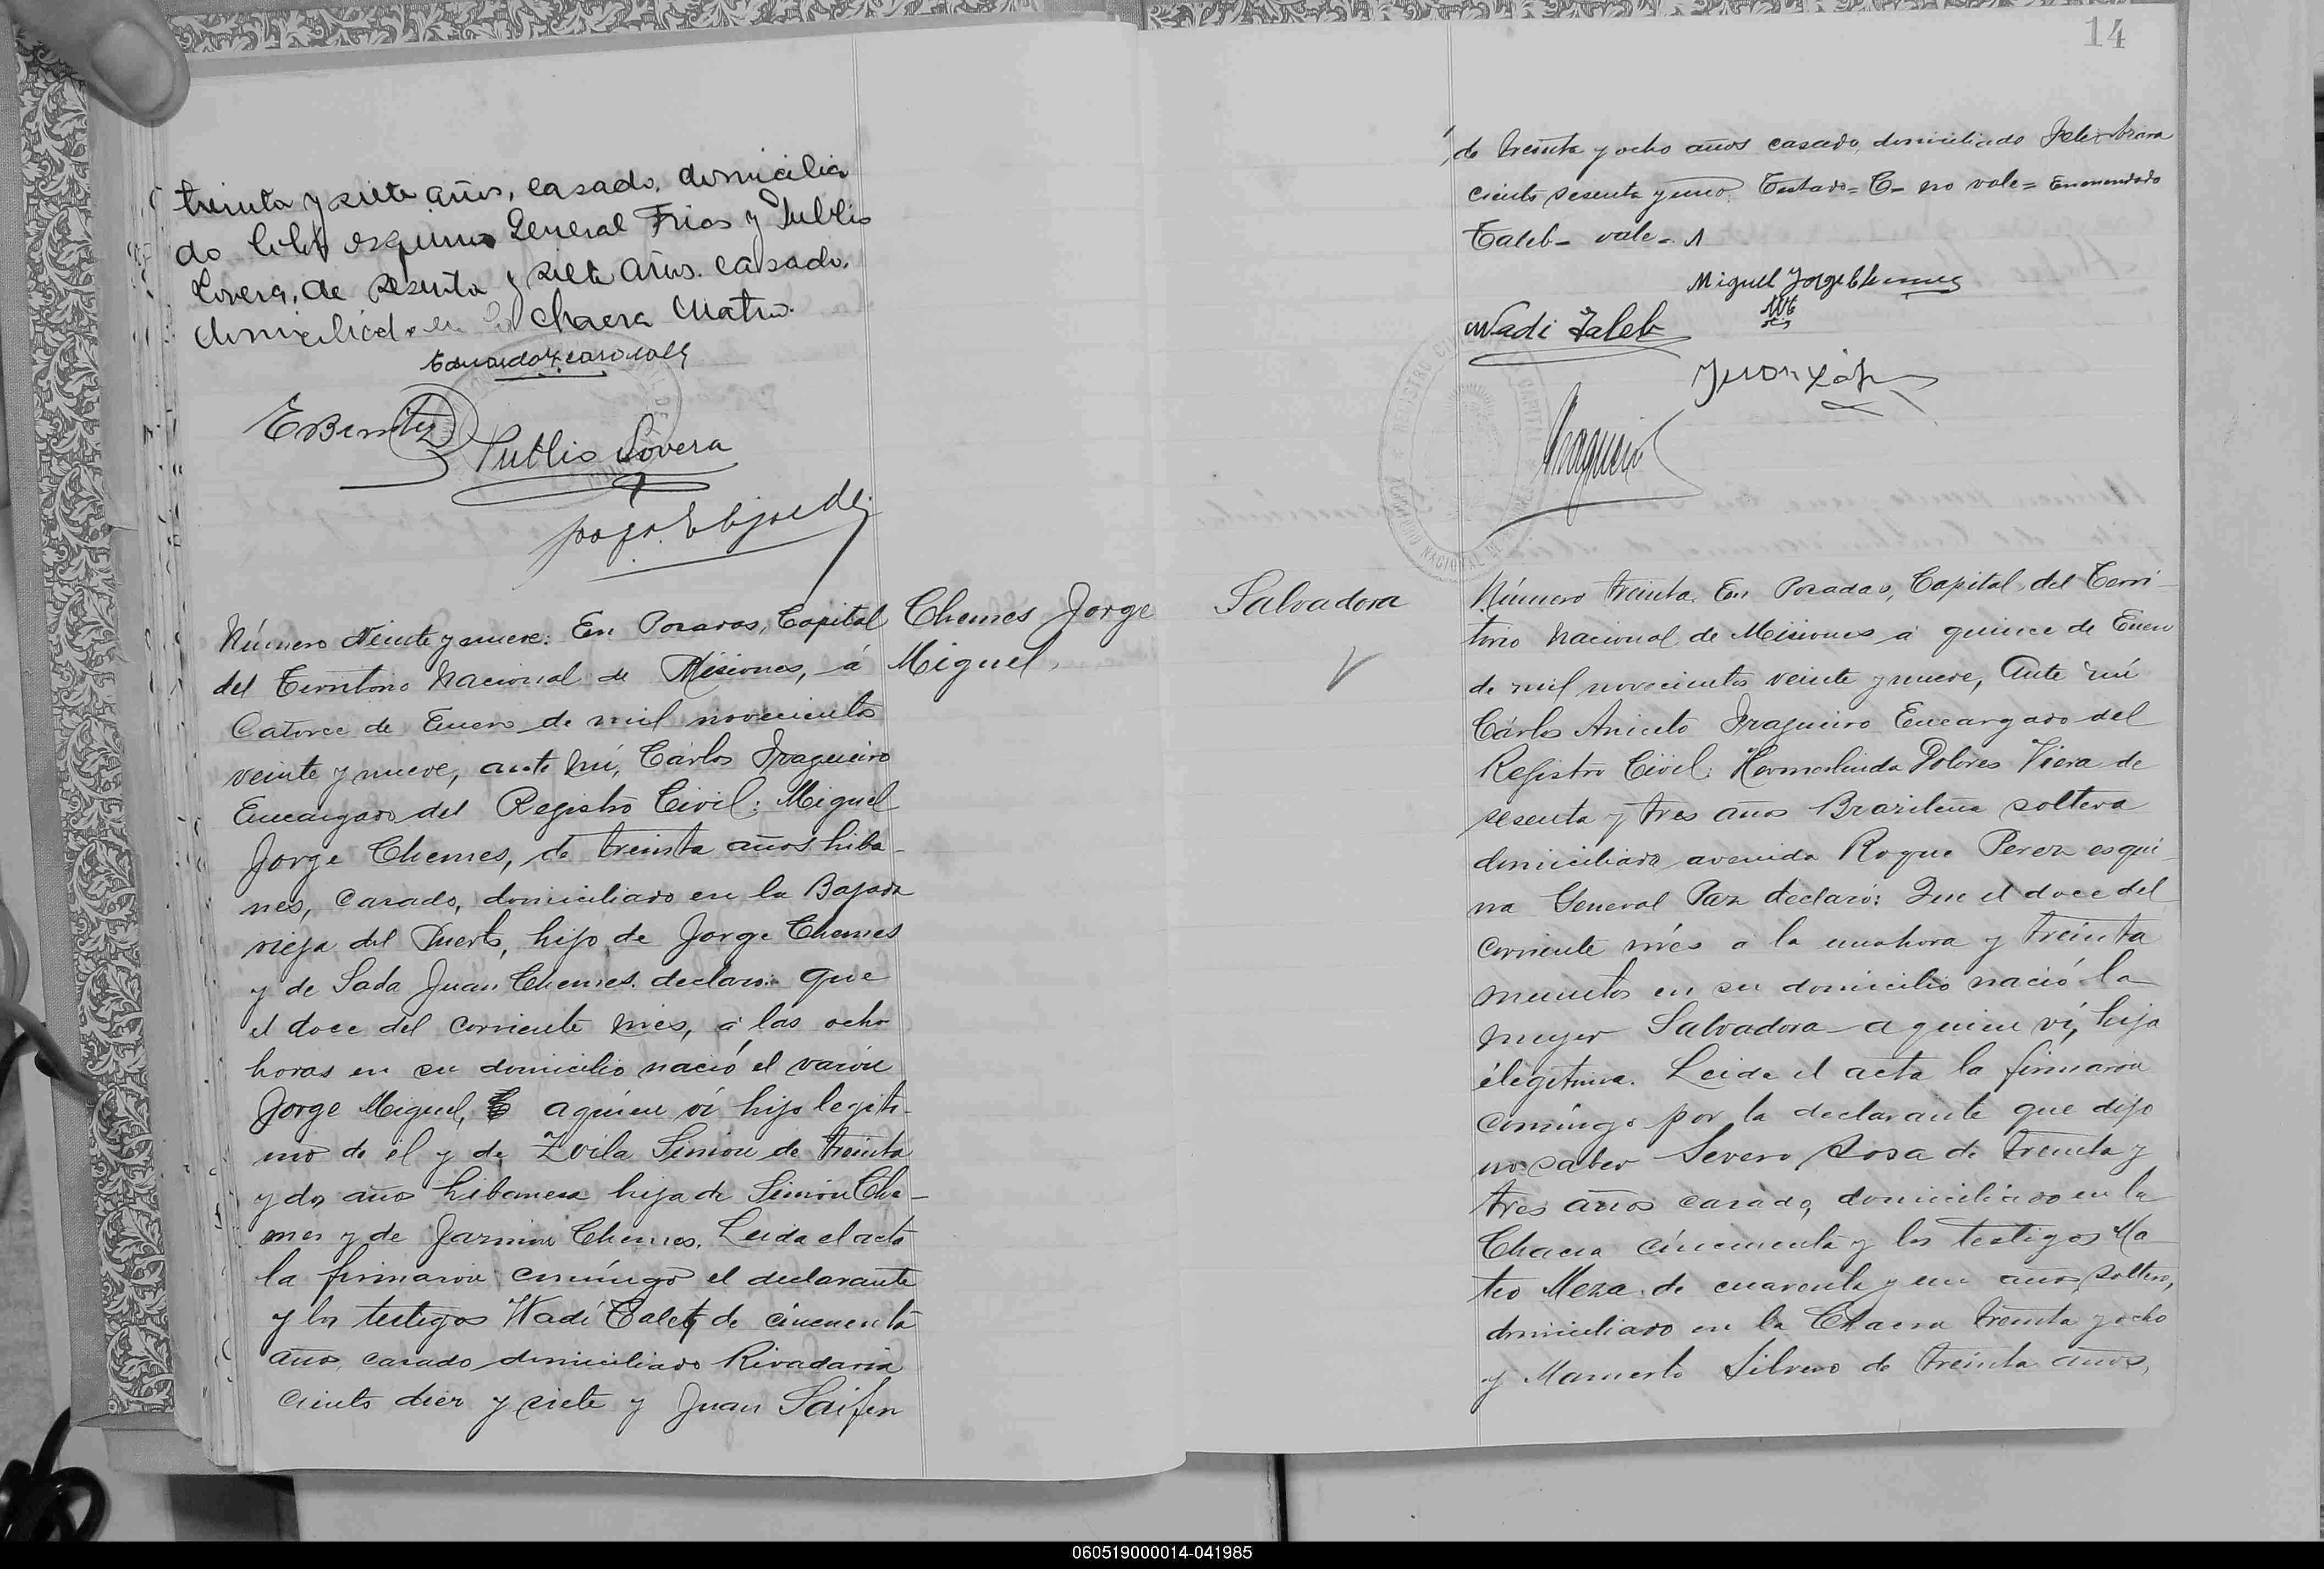 treinta y siete años, casado, domicilia
do Chile esquina General Frias y Publio
Lovera, de sesenta y siete años. casado.
domiciliado en la chacra cuatro.
EBenitez
Publio Lovera
Número veinte y nueve: En Posadas, Capital
del Territorio Nacional de Misiones, á
Catorce de Enero de mil novecientos
veinte y nueve, ante mí, Cárlos Iragueiro
Encargado del Registro Civil: Miguel
Jorge Chemes, de treinta años liba-
nes, casado, domiciliado en la Bajada
vieja del Puerto, hijo de Jorge Chemes
y de Sada Juan Chemes. declaró: que
el doce del corriente mes, á las ocho
horas en su domicilio nació el varón
Jorge Miguel, a quien ví hijo legíti-
mo de él y de Zoila Simón de treinta
y dos años libanesa hija de Simón Che-
mes y de Jazmin Chemes. Leida el acta
la firmaron conmigo el declarante
y los testigos Wadi Taleb de cincuenta
años, casado domiciliado Rivadavia
ciento diez y siete y Juan Saifen
Chemes Jorge
Miguel
14
de treinta y ocho años casado, domiciliado Felix
ciento sesenta y uno. Testado= C- no vale= Enmendado
Taleb- vale-
Miguel Jorge Chemes
Wadi Taleb
Iragueiro
Salvadora
Número treinta. En Posadas, Capital del Terri-
torio Nacional de Misiones á quince de Enero
de mil novecientos veinte y nueve, Ante mí
Cárlos Aniceto Iragueiro Encargado del
Registro Civil: Hermerlinda Dolores Viera de
sesenta y tres años Brasileña soltera
domiciliada avenida Roque Perez esqui-
na General Paz declaró: Que el doce del
corriente més á la una hora y treinta
minutos en su domicilio nació la
mujer Salvadora a quien ví, hija
ilegitima. Leida el acta la firmaron
conmigo por la declarante que dijo
no saber Severo Sosa de treinta y
tres años casado, domiciliado en la
Chacra cincuenta y los testigos Ma
teo Meza de cuarenta y un años, soltero,
domiciliado en la Chacra treinta y ocho
y Mamerto Silvero de treinta años,
060519000014-041985